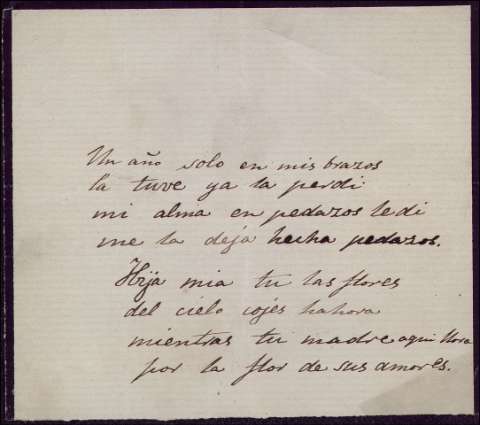 Un año solo en mis brazos
la tuve ya la perdi
mi alma en pedazos le di
me la deja hecha pedazos.
Hija mia tu las flores
del cielo cojes hahora
mientras tu madre aqui llora
por la flor de sus amores.